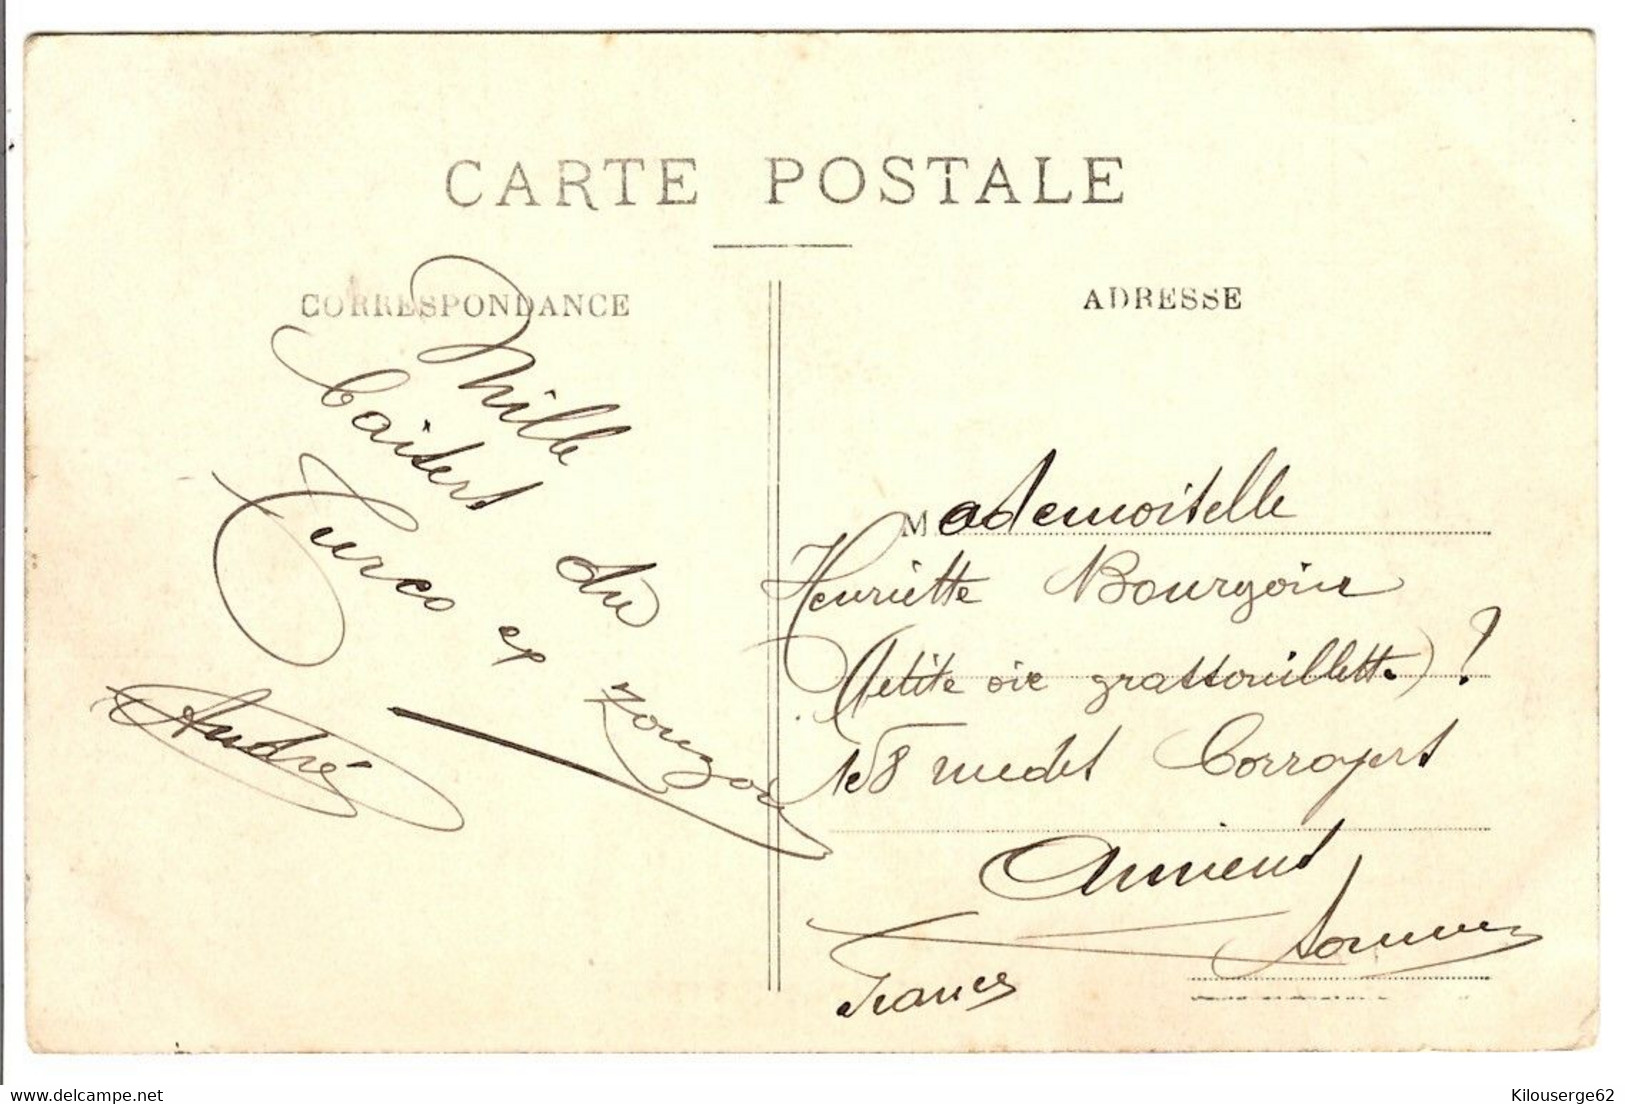 CARTE POSTALE
CORRESPONDANCE
Mille
Baisers du
Turco ex zouzou
André
ADRESSE
Mademoiselle
Henriette Bourgoin
(Petite oie grassouillette) ?
158 rue des Corroyers
Amiens
Somme
France
www.delcampe.net
Kilouserge62